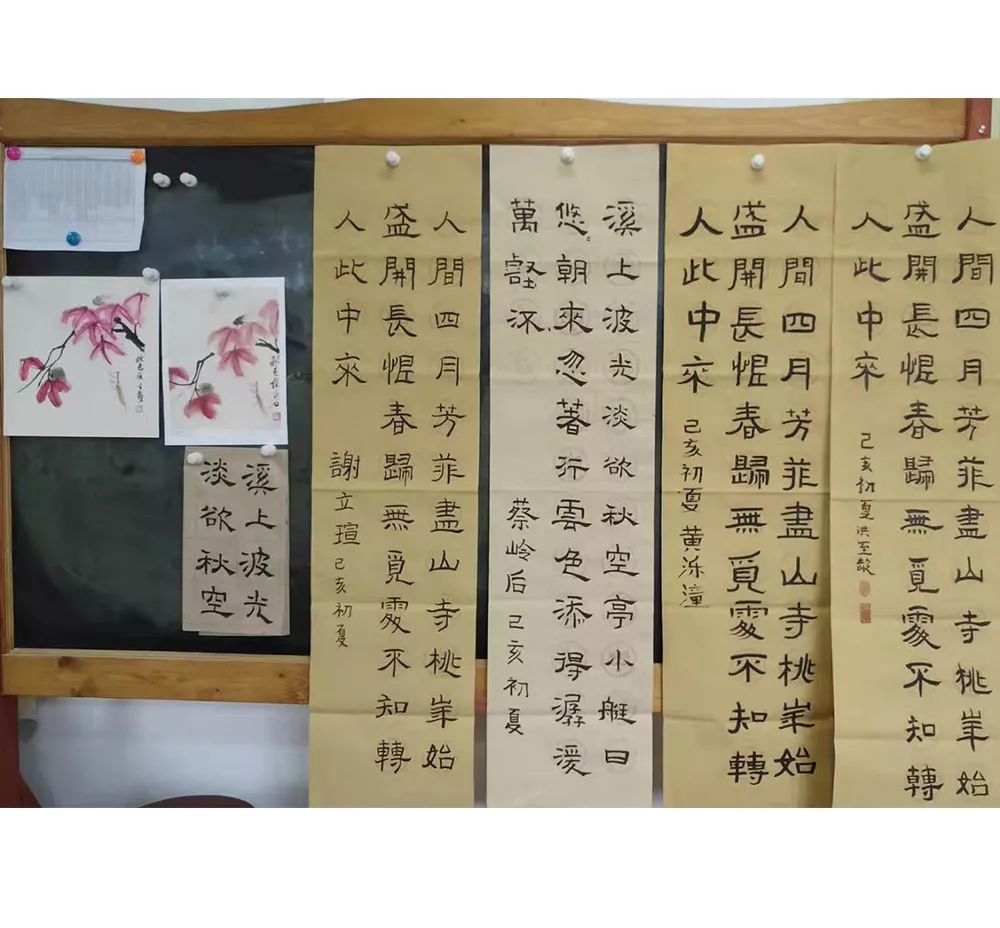 人間四月芳菲盡山寺桃華始
盛開長恨春歸無覓處不知轉
入此中來
己亥初夏 洪至
人間四月芳菲盡山寺桃華始
盛開長恨春歸無覓處不知轉
入此中來 己亥初夏 黄泺潼
溪上波光淡欲秋空亭小艇日
悠悠朝來忽著行雲色添得潺湲
萬壑流
蔡岭后 己亥初夏
人間四月芳菲盡山寺桃華始
盛開長恨春歸無覓處不知轉
入此中來
謝立瑄 己亥初夏
溪上波光
淡欲秋空